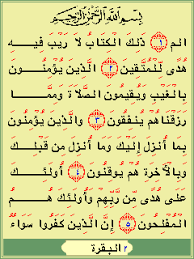 بِسْمِ اللَّهِ الرَّحْمَٰنِ الرَّحِيمِ
الم ١ ذَلِكَ الْكِتَابُ لَا رَيْبَ فِيهِ
هُدًى لِلْمُتَّقِينَ ٢ الَّذِينَ يُؤْمِنُونَ
بِالْغَيْبِ وَيُقِيمُونَ الصَّلَاةَ وَمِمَّا
رَزَقْنَاهُمْ يُنْفِقُونَ ٣ وَالَّذِينَ يُؤْمِنُونَ
بِمَا أُنْزِلَ إِلَيْكَ وَمَا أُنْزِلَ مِنْ قَبْلِكَ
وَبِالْآخِرَةِ هُمْ يُوقِنُونَ ٤ أُولَئِكَ
عَلَى هُدًى مِنْ رَبِّهِمْ وَأُولَئِكَ هُمُ
الْمُفْلِحُونَ ٥ إِنَّ الَّذِينَ كَفَرُوا سَوَاءٌ
٢ البقرة